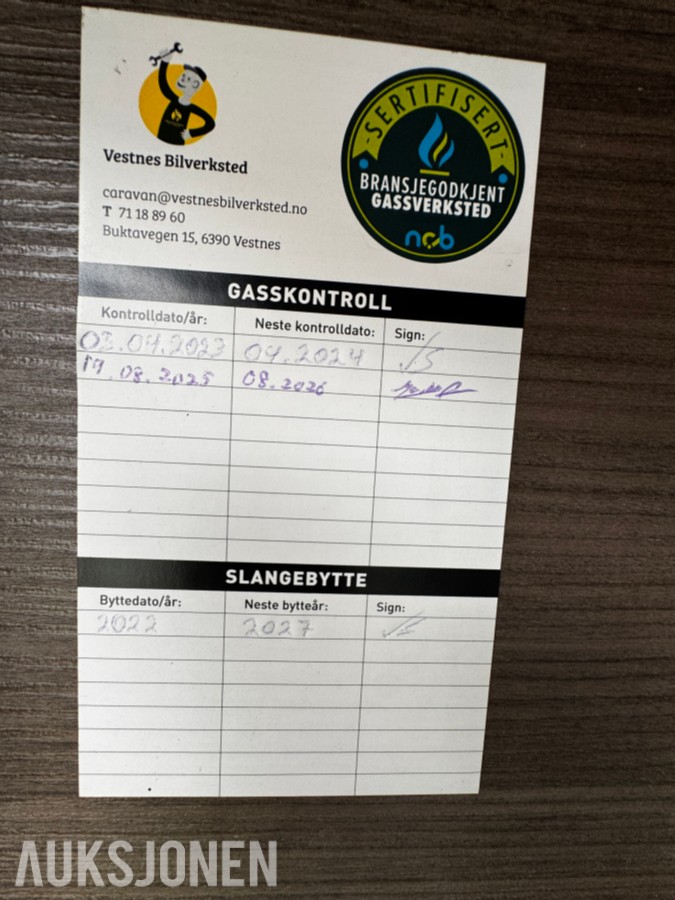 Vestnes Bilverksted
caravan@vestnesbilverksted.no
T 71 18 89 60
Buktavegen 15, 6390 Vestnes
SERTIFISERT
BRANSJEGODKJENT
GASSVERKSTED
ncb
GASSKONTROLL
Kontrolldato/år: Neste kontrolldato: Sign:
03.04.2023 04.2024
19.08.2025 08.2026
SLANGEBYTTE
Byttedato/år: Neste bytteår: Sign:
2022 2027
AUKSJONEN